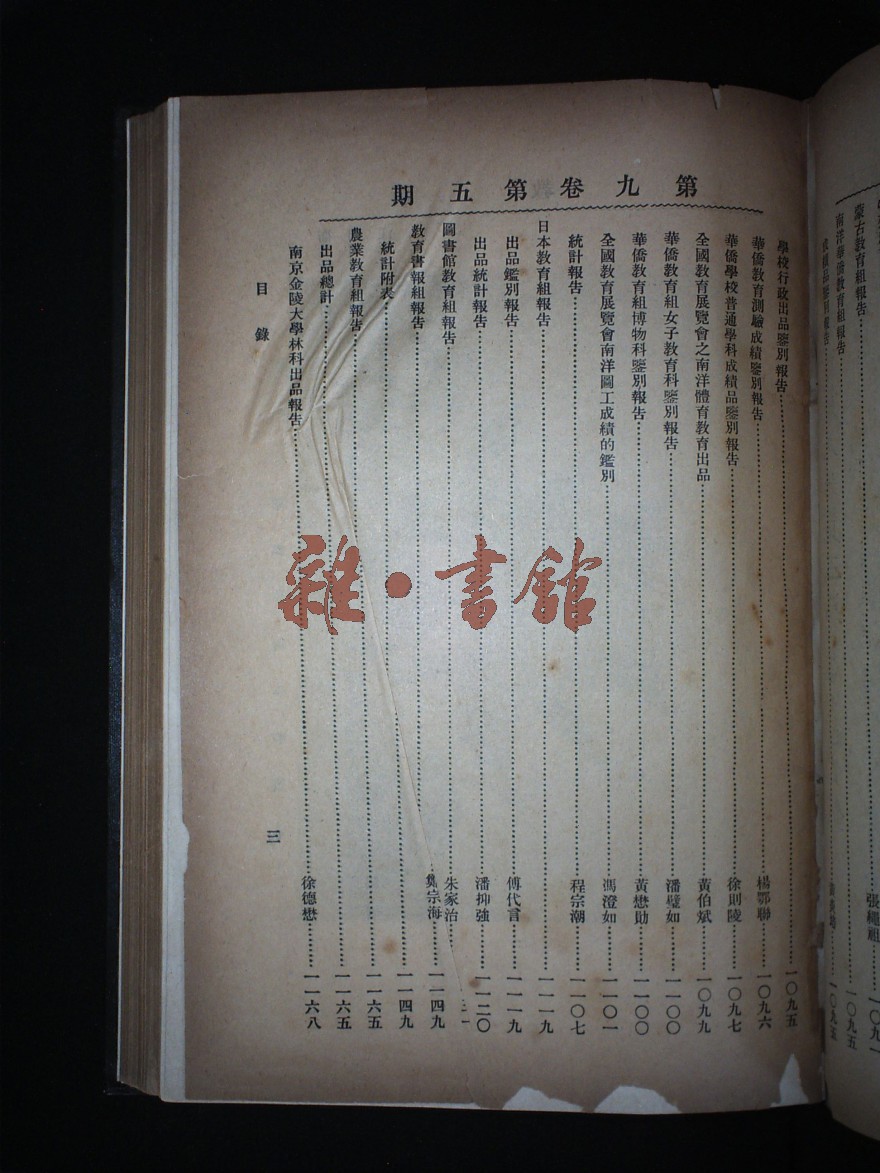 蒙古教育組報告
南洋華僑教育組報告
一〇九五
第九卷第五期
學校行政出品鑒別報告 一〇九五
華僑教育測驗成績鑒別報告 楊鄂聯 一〇九六
華僑學校普通學科成績品鑒別報告 徐則陵 一〇九七
全國教育展覽會之南洋體育教育出品 黃伯斌 一〇九九
華僑教育組女子教育科鑒別報告 潘璧如 一一〇〇
華僑教育組博物科鑒別報告 黃懋勛 一一〇〇
全國教育展覽會南洋圖工成績的鑑別 馮澄如 一一〇一
統計報告 程宗潮 一一〇七
日本教育組報告 一一一九
出品鑑別報告 傅代言 一一一九
出品統計報告 潘抑強 一一二〇
圖書館教育組報告 朱家治
教育書報組報告 鄭宗海 一一四九
統計附表 一一四九
農業教育組報告 一一六五
出品總計 一一六五
南京金陵大學林科出品報告 徐德懋 一一六八
目錄
三
雜·書館